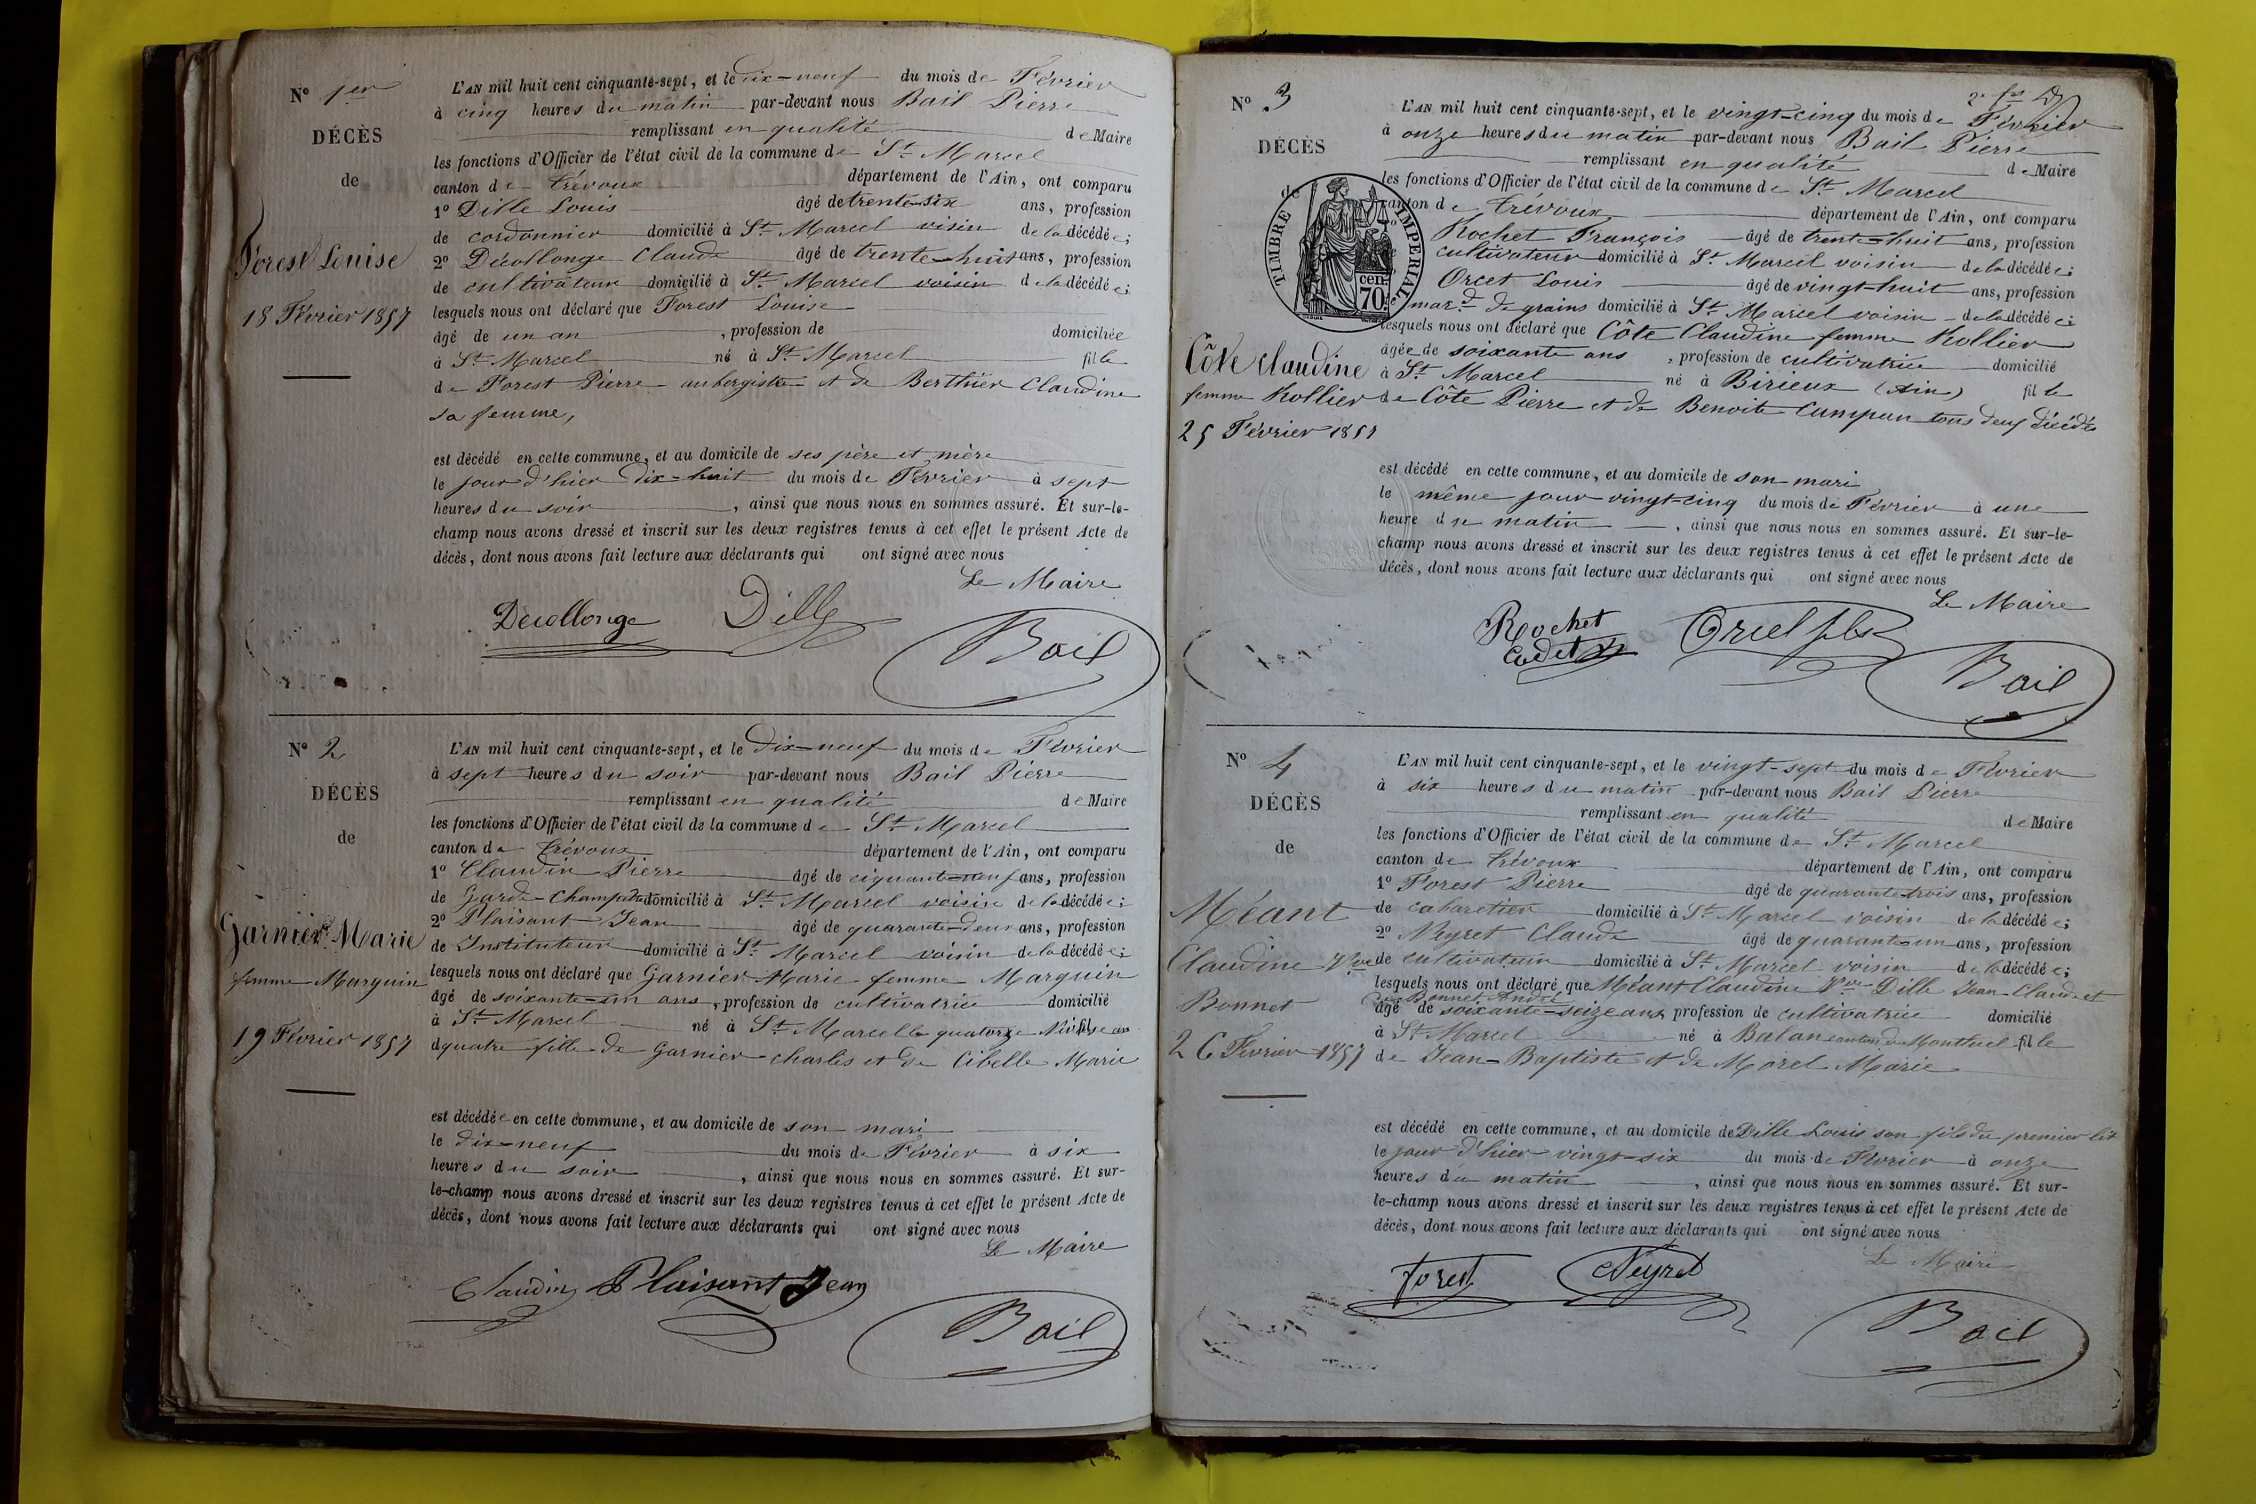 N° 1er
DÉCÈS
de
Forest Louise
18 Février 1857
L'AN mil huit cent cinquante-sept, et le dix-neuf du mois de Février
à cinq heures du matin par-devant nous Bail Pierre
remplissant en qualité de Maire
les fonctions d'Officier de l'état civil de la commune de St Marcel
canton de Trévoux département de l'Ain, ont comparu
1° Dille Louis âgé de trente-six ans, profession
de cordonnier domicilié à St Marcel voisin de la décédée;
2° Décollonge Claude âgé de trente-huit ans, profession
de cultivateur domicilié à St Marcel voisin de la décédée;
lesquels nous ont déclaré que Forest Louise
âgé de un an, profession de domiciliée
à St Marcel né à St Marcel fille
de Forest Pierre aubergiste et de Berthier Claudine
sa femme,
est décédé en cette commune, et au domicile de ses père et mère
le jour d'hier dix-huit du mois de Février à sept
heures du soir, ainsi que nous nous en sommes assuré. Et sur-le-
champ nous avons dressé et inscrit sur les deux registres tenus à cet effet le présent Acte de
décès, dont nous avons fait lecture aux déclarants qui ont signé avec nous
Le Maire
Decollonge Dille
Bail
N° 2
DÉCÈS
de
Garnier Marie
femme Marguin
19 Février 1857
L'AN mil huit cent cinquante-sept, et le dix-neuf du mois de Février
à sept heures du soir par-devant nous Bail Pierre
remplissant en qualité de Maire
les fonctions d'Officier de l'état civil de la commune de St Marcel
canton de Trévoux département de l'Ain, ont comparu
1° Claudin Pierre âgé de ciquante-neuf ans, profession
de Garde-Champêtre domicilié à St Marcel voisin de la décédée;
2° Plaisant Jean âgé de quarante-deux ans, profession
de Instituteur domicilié à St Marcel voisin de la décédée;
lesquels nous ont déclaré que Garnier Marie femme Marguin
âgé de soixante-un ans, profession de cultivatrice domicilié
à St Marcel né à St Marcel le quatorze Nivôse an
quatre fille de Garnier Charles et de Cibelle Marie
est décédée en cette commune, et au domicile de son mari
le dix-neuf du mois de Février à six
heures du soir, ainsi que nous nous en sommes assuré. Et sur-
le-champ nous avons dressé et inscrit sur les deux registres tenus à cet effet le présent Acte de
décès, dont nous avons fait lecture aux déclarants qui ont signé avec nous
Le Maire
Claudin Plaisant Jean
Bail
N° 3
DÉCÈS
TIMBRE IMPERIAL
cen. 70
Côte Claudine
femme Rollier
25 Février 1857
L'AN mil huit cent cinquante-sept, et le vingt-cinq du mois de Février
à onze heures du matin par-devant nous Bail Pierre
remplissant en qualité de Maire
les fonctions d'Officier de l'état civil de la commune de St Marcel
canton de Trévoux département de l'Ain, ont comparu
Rochet François âgé de trente-huit ans, profession
cultivateur domicilié à St Marcel voisin de la décédée;
Orcet Louis âgé de vingt-huit ans, profession
mard de grains domicilié à St Marcel voisin de la décédée;
lesquels nous ont déclaré que Côte Claudine femme Rollier
âgée de soixante ans, profession de cultivatrice domicilié
à St Marcel né à Birieux (Ain) fille
de Côte Pierre et de Benoite Campan tous deux décédés
est décédé en cette commune, et au domicile de son mari
le même jour vingt-cinq du mois de Février à une
heure du matin, ainsi que nous nous en sommes assuré. Et sur-le-
champ nous avons dressé et inscrit sur les deux registres tenus à cet effet le présent Acte de
décès, dont nous avons fait lecture aux déclarants qui ont signé avec nous
Le Maire
Rochet Orcel fils
Cadet
Bail
N° 4
DÉCÈS
de
Méant
Claudine Vve
Bonnet
26 Février 1857
L'AN mil huit cent cinquante-sept, et le vingt-sept du mois de Février
à six heures du matin par-devant nous Bail Pierre
remplissant en qualité de Maire
les fonctions d'Officier de l'état civil de la commune de St Marcel
canton de Trévoux département de l'Ain, ont comparu
1° Forest Pierre âgé de quarante-trois ans, profession
de cabaretier domicilié à St Marcel voisin de la décédée;
2° Neyret Claude âgé de quarante-un ans, profession
de cultivateur domicilié à St Marcel voisin de la décédée;
lesquels nous ont déclaré que Méant Claudine Vve Dille Jean-Claude et
de Bonnet André
âgé de soixante-seize ans profession de cultivatrice domicilié
à St Marcel né à Balan canton de Montluel fille
de Jean-Baptiste et de Morel Marie
est décédé en cette commune, et au domicile de Dille Louis son fils du premier lit
le jour d'hier vingt-six du mois de Février à onze
heures du matin, ainsi que nous nous en sommes assuré. Et sur-
le-champ nous avons dressé et inscrit sur les deux registres tenus à cet effet le présent Acte de
décès, dont nous avons fait lecture aux déclarants qui ont signé avec nous
Le Maire
Forest Neyret
Bail